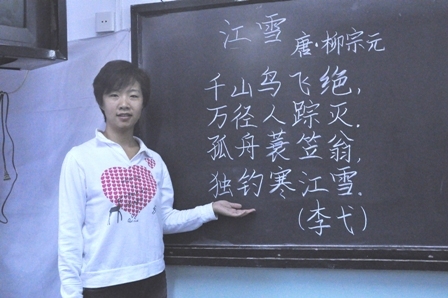 江雪
唐·柳宗元
千山鸟飞绝,
万径人踪灭.
孤舟蓑笠翁,
独钓寒江雪.
(李弋)